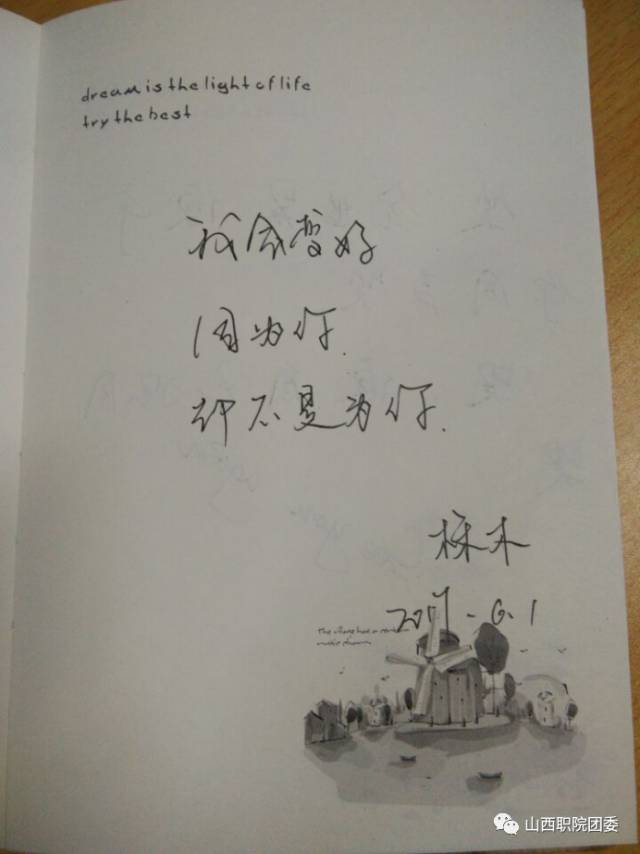 dream is the light of life
try the best
我会变好
因为你.
却不是为你.
栋木
2017-6.1
The village has a
山西职院团委